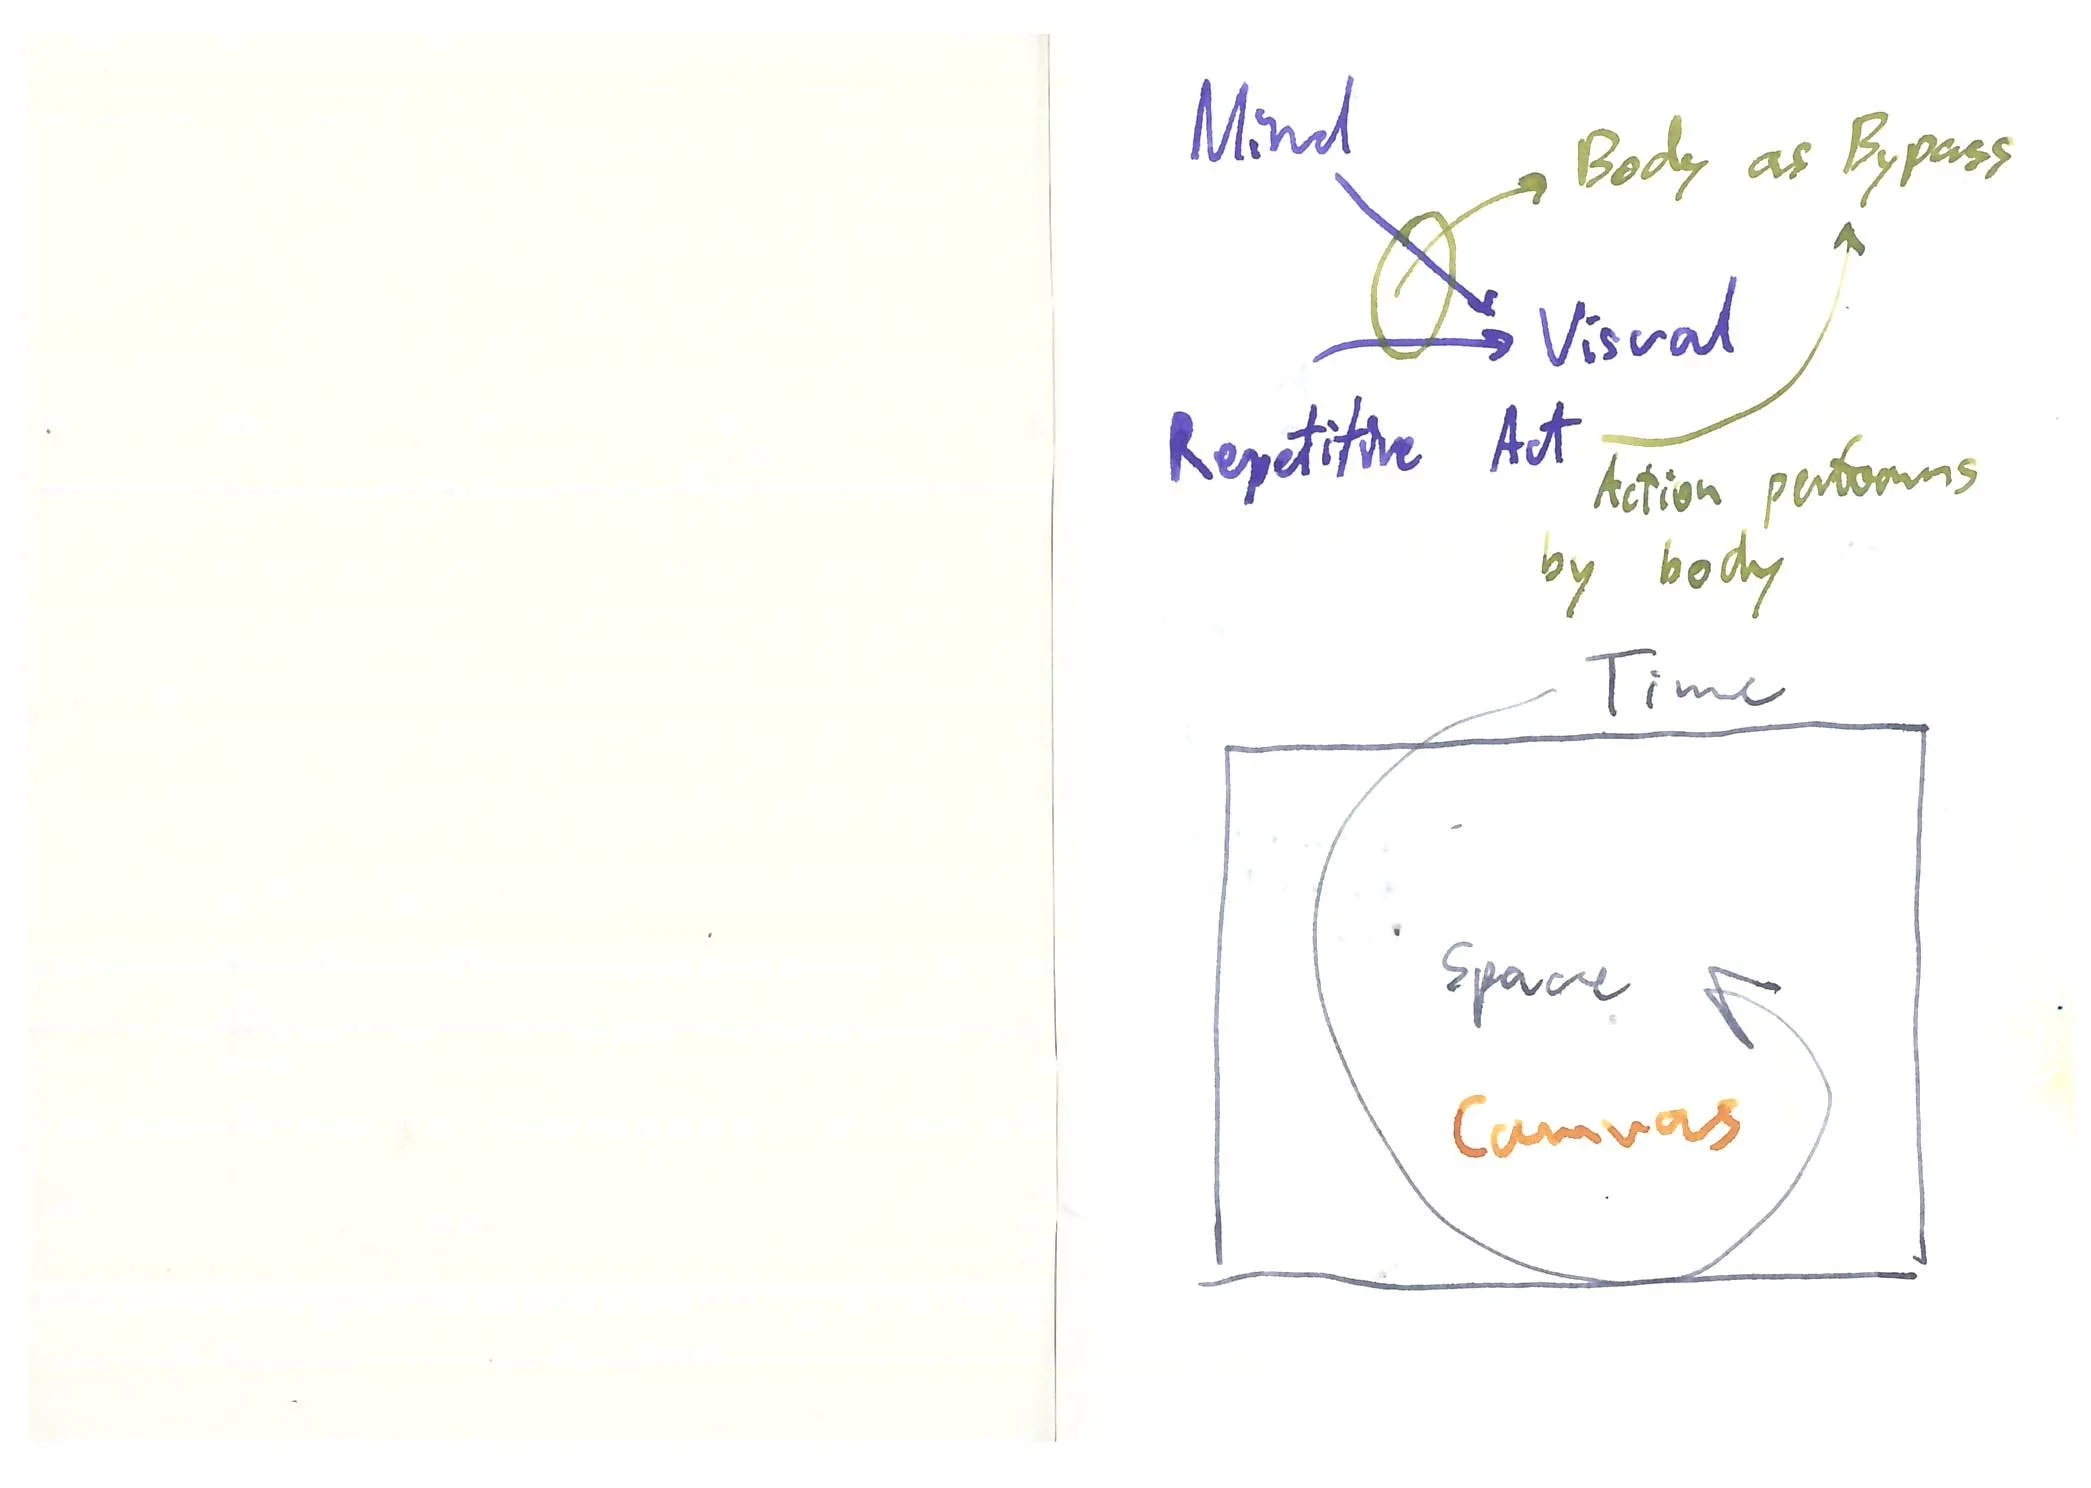 Mind
Body as Bypass
Visual
Repetitive Act
Action performs
by body
Time
Space
Canvas